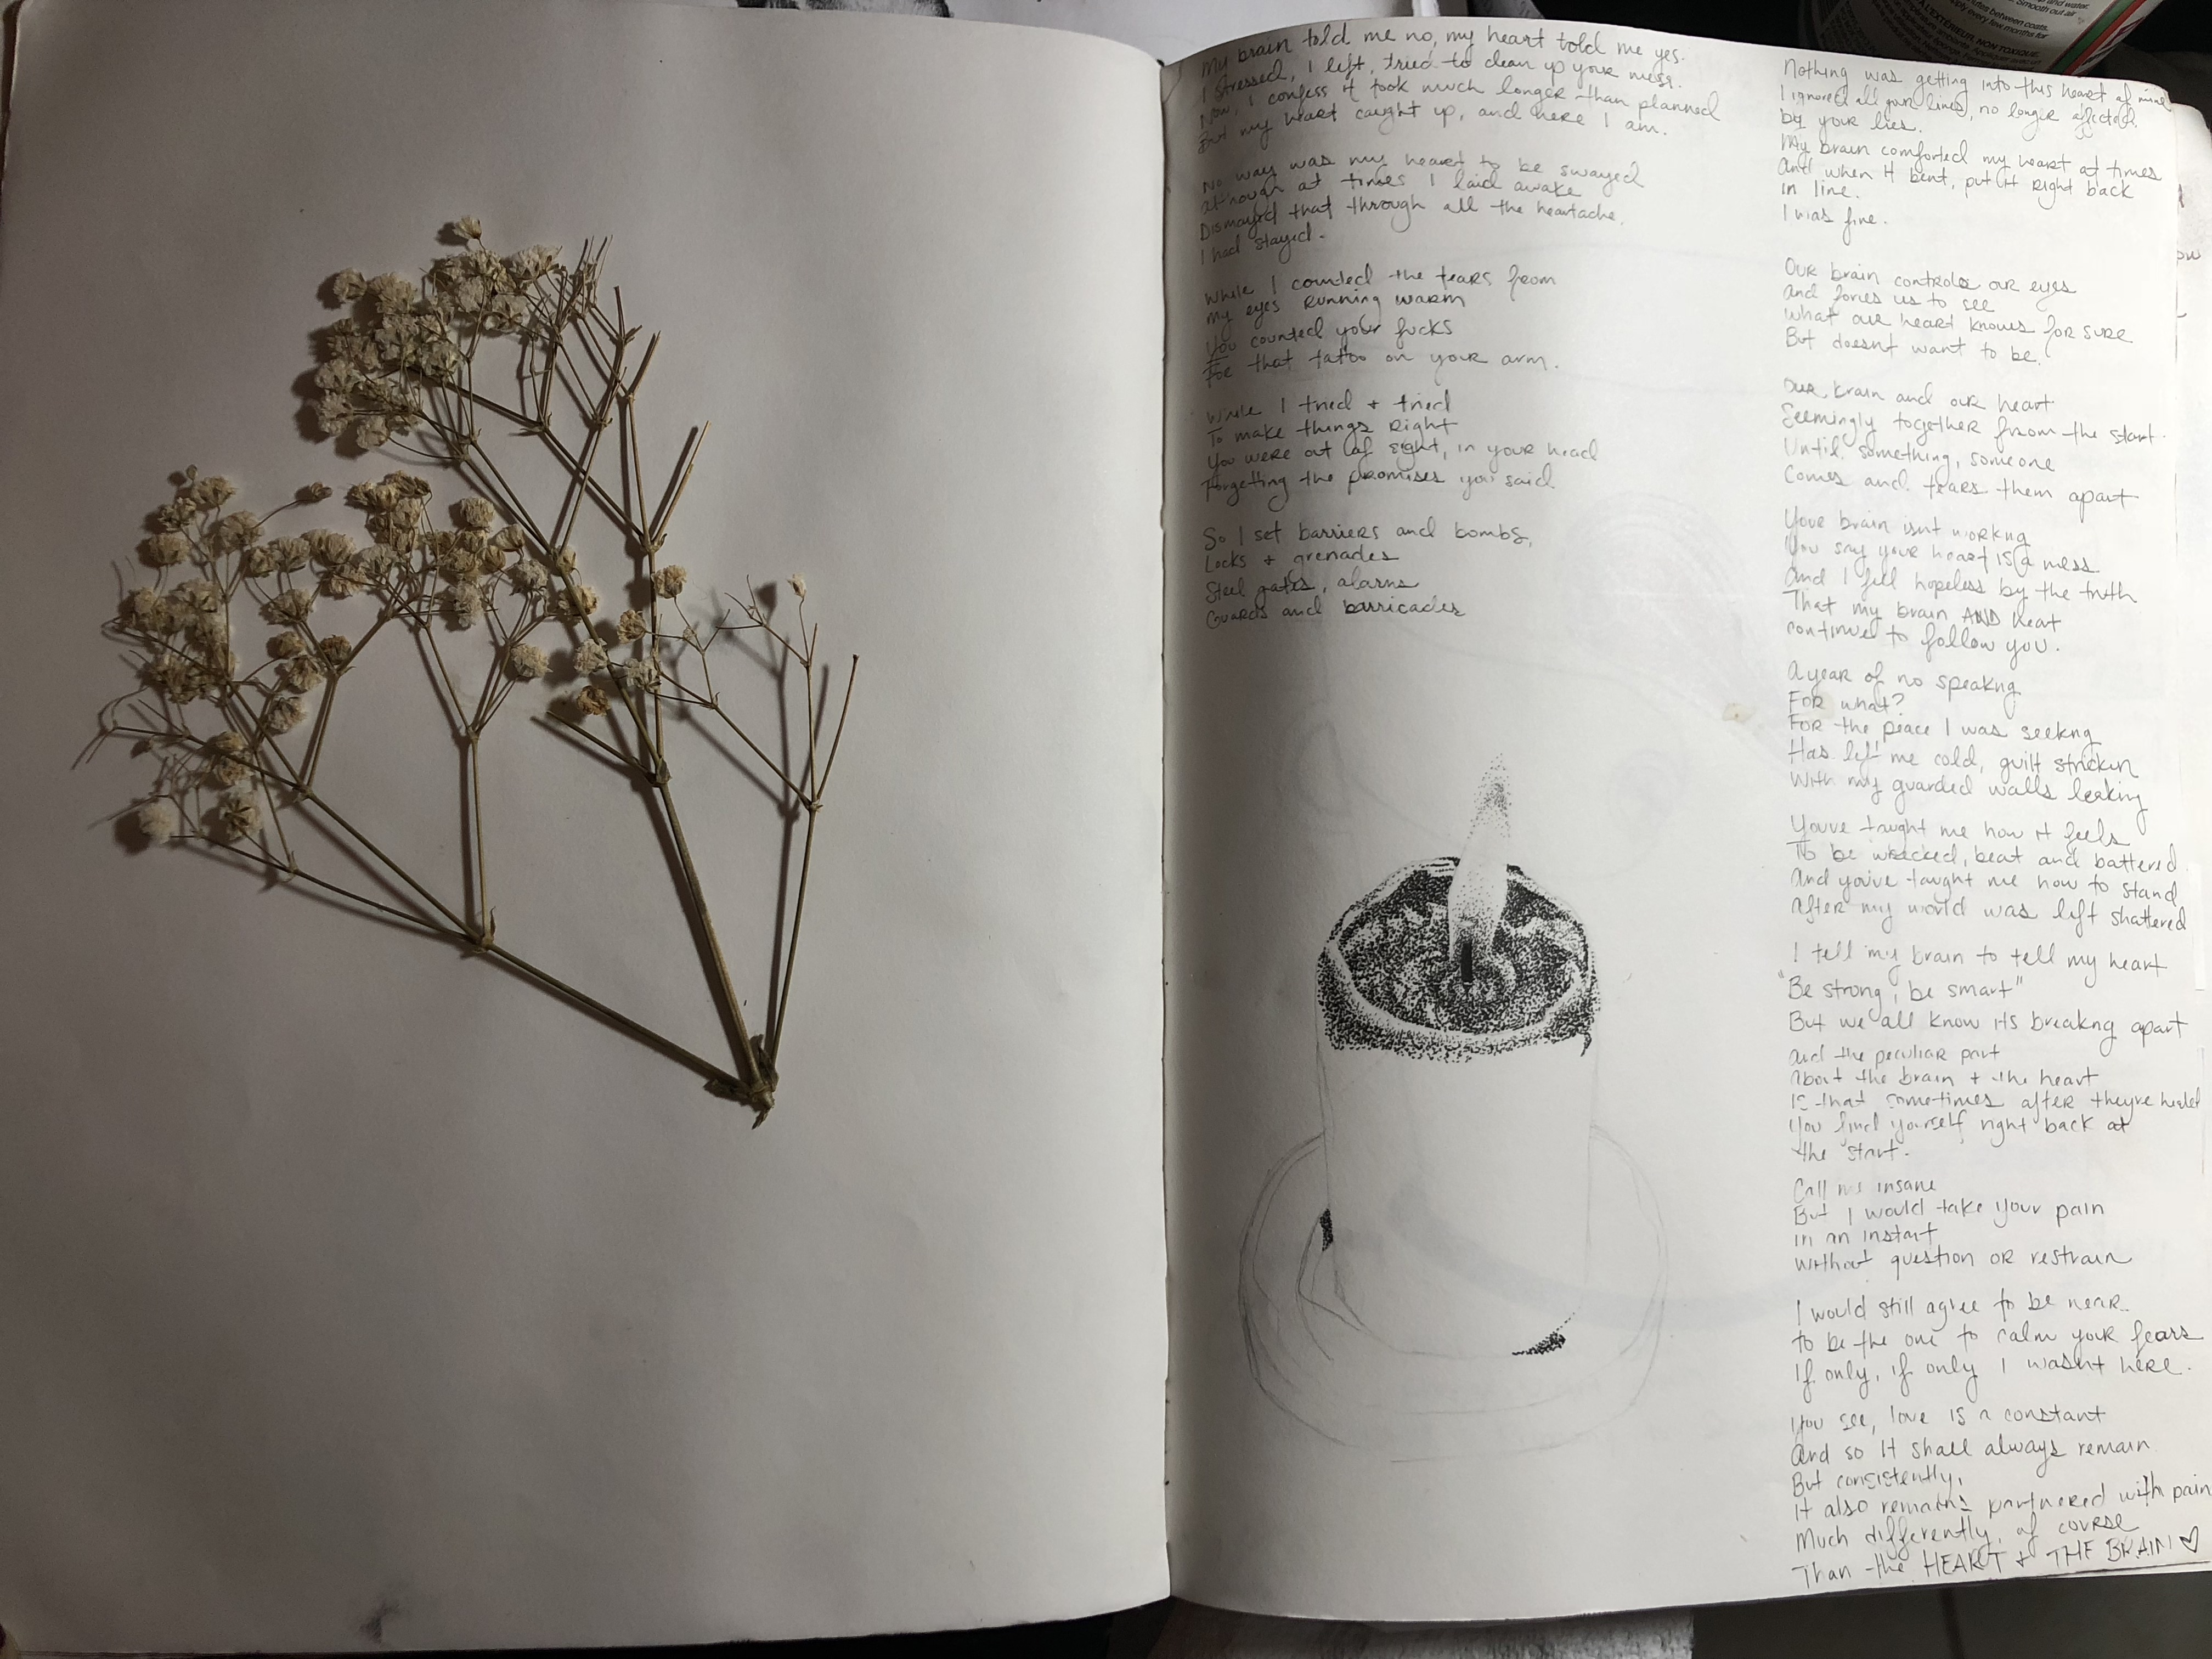 My brain told me no, my heart told me yes.
I stressed, I left, tried to clean up your mess.
Now, I confess it took much longer than planned
But my heart caught up, and here I am.
No way was my heart to be swayed
although at times I laid awake
Dismayed that through all the heartache,
I had stayed.
While I counted the tears from
my eyes running warm
You counted your fucks
For that tattoo on your arm.
While I tried + tried
To make things right
You were out of sight, in your head
Forgetting the promises you said.
So I set barriers and bombs,
Locks + grenades
Steel gates, alarms
Guards and barricades
Nothing was getting into this heart of mine
I ignored all your lines, no longer affected
by your lies.
My brain comforted my heart at times
And when it bent, put it right back
in line.
I was fine.
Our brain controls our eyes
and forces us to see
what our heart knows for sure
But doesnt want to be.
Our brain and our heart
Seemingly together from the start.
Until something, someone
Comes and tears them apart
Your brain isnt working
You say your heart is a mess
And I feel hopeless by the truth
That my brain AND heart
continue to follow you.
A year of no speakng
For what?
For the peace I was seekng
Has left me cold, guilt stricken
With my guarded walls leaking
Youve taught me how it feels
To be wrecked, beat and battered
and you've taught me how to stand
after my world was left shattered
I tell my brain to tell my heart
"Be strong, be smart"
But we all know its breakng apart
and the peculiar part
about the brain + the heart
is that sometimes after theyre healed
You find yourself right back at
the start.
Call me insane
But I would take your pain
in an instant
without question or restrain
I would still agree to be near
to be the one to calm your fears
If only, if only I wasnt here.
You see, love is a constant
And so it shall always remain
But consistently,
It also remains partnered with pain
Much differently, of course
Than the HEART + THE BRAIN ♡
A L'EXTÉRIEUR. NON TOXIQUE.